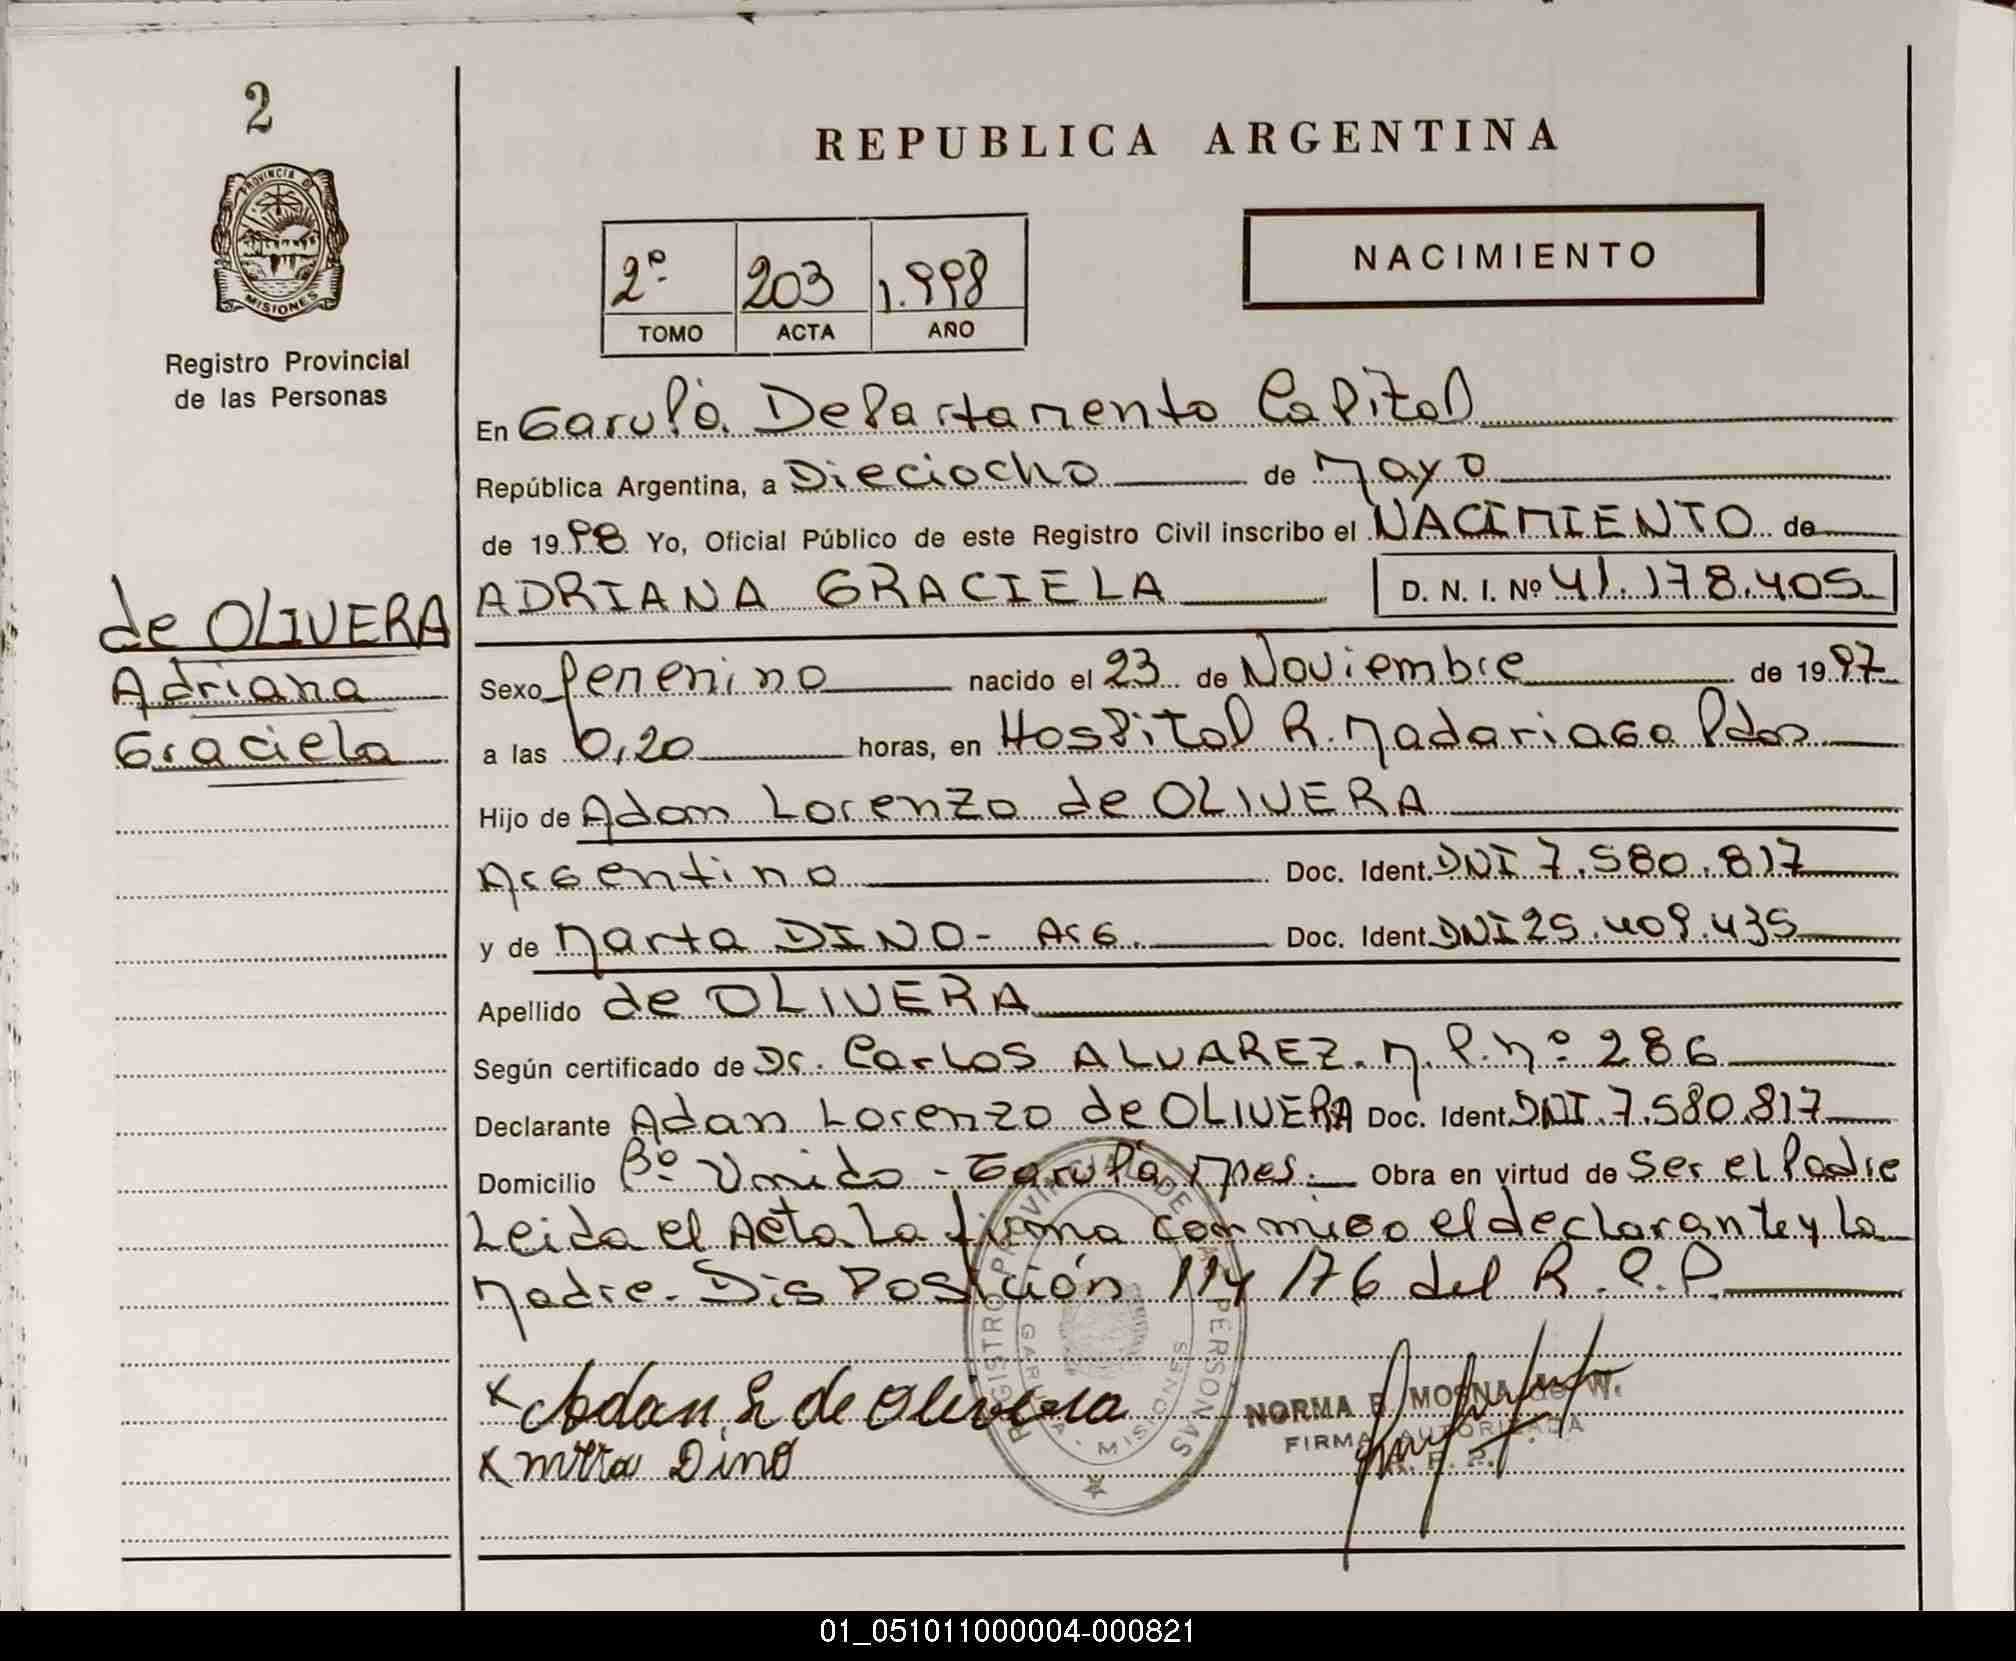 2
PROVINCIA DE
MISIONES
Registro Provincial
de las Personas
de OLIVERA
Adriana
Graciela
REPUBLICA ARGENTINA
NACIMIENTO
2º 203 1.998
TOMO ACTA AÑO
En Garupá. Departamento Capital
República Argentina, a Dieciocho de Mayo
de 1998 Yo, Oficial Público de este Registro Civil inscribo el NACIMIENTO de
ADRIANA GRACIELA D. N. I. Nº 41.178.405
Sexo femenino nacido el 23 de Noviembre de 1997
a las 0,20 horas, en Hospital R. Madariaga Pdas
Hijo de Adan Lorenzo de OLIVERA
Argentino Doc. Ident. DNI 7.580.817
y de Marta DINO - Arg. Doc. Ident. DNI 25.409.435
Apellido de OLIVERA
Según certificado de Dr. Carlos ALVAREZ. M.P. Nº 286
Declarante Adan Lorenzo de OLIVERA Doc. Ident. DNI. 7.580.817
Domicilio Bº Unido - Garupá, Mnes. Obra en virtud de Ser el Padre
Leida el Acta La firma conmigo el declarante y la
Madre. Disposición 114/76 del R.P.P.
REGISTRO PROVINCIAL DE LAS PERSONAS
GARUPA - MISIONES
x Adan L de Olivera
NORMA B. MOSNA de W.
FIRMA AUTORIZADA
x mrta Dino
01_051011000004-000821